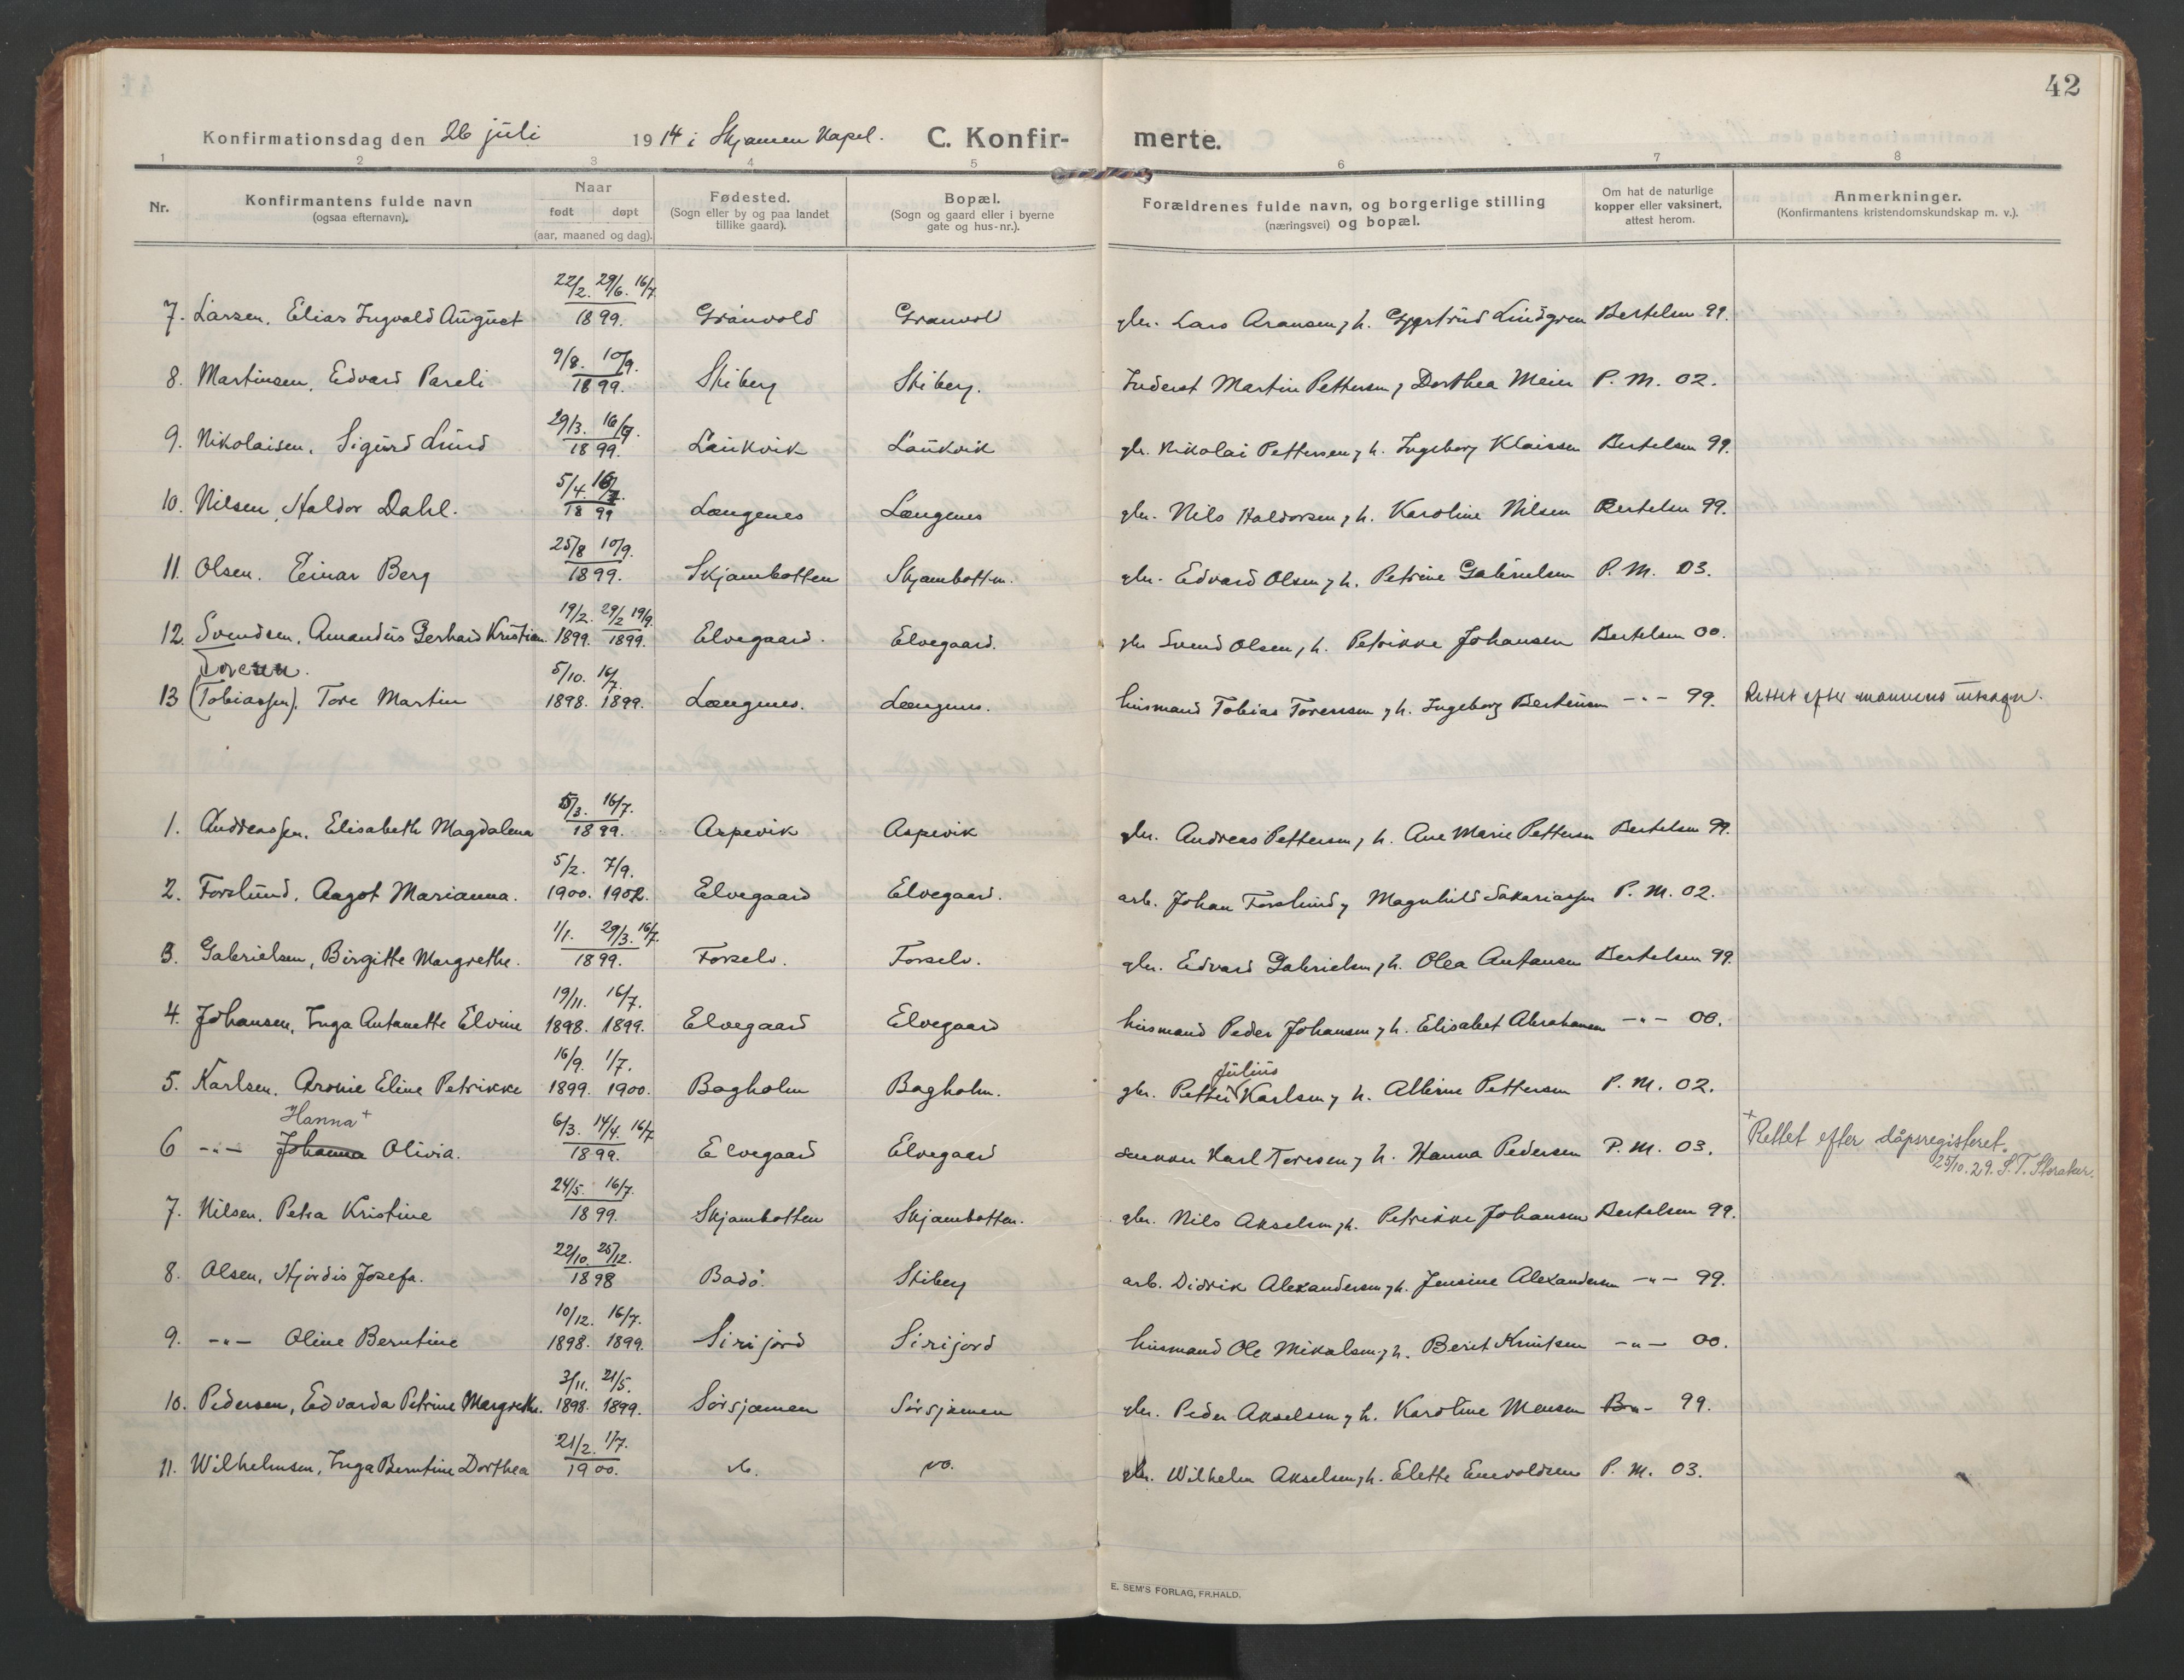 42
Konfirmationsdag den 26 juli 1914 i Skjomen Kapel. C. Konfir- merte.
1 2 3 4 5 6 7 8
Nr. Konfirmantens fulde navn (ogsaa efternavn). Naar født døpt (aar, maaned og dag). Fødested. (Sogn eller by og paa landet tillike gaard). Bopæl. (Sogn og gaard eller i byerne gate og hus-nr.). Forældrenes fulde navn, og borgerlige stilling (næringsvei) og bopæl. Om hat de naturlige kopper eller vaksinert, attest herom. Anmerkninger. (Konfirmantens kristendomskundskap m. v.).
22/2. 29/6. 16/7
7. Larsen, Elias Ingvald August 1899. Grånvold Granvold gbr. Lars Aronsen, h. Lindgren Bertelsen 99.
9/8. 10/9.
8. Martinsen, Edvard Pareli 1899. Stiberg Stiberg. Inderst Martin Pettersen, Dorthea Meier P. M. 02.
29/3. 16/7.
9. Nikolaisen, Sigurd Lund 1899. Laukvik Laukvik gbr. Nikolai Pettersen, h. Ingeborg Klaissen Bertelsen 99.
5/4. 16/7.
10. Nilsen, Haldor Dahl. 1899 Længenes Længenes gbr. Nils Haldorsen, h. Karoline Nilsen Bertelsen 99.
25/8 10/9.
11. Olsen. Einar Berg 1899. Skjambotten Skjambotten. gbr. Edvard Olsen, h. Petrine Gabrielsen P. M. 03.
19/2. 29/2 19/9.
12. Svendsen, Amandus Gerhard Kristian. 1899. 1899. Elvegaard. Elvegaard. gbr Svend Olsen, h. Petrikke Johansen Bertelsen 00.
Toresen. 5/10. 16/7.
13 (Tobiassen). Tore Martin 1898. 1899. Længenes. Længenes. husmand Tobias Toressen, h. Ingeborg Berteusen -"- 99. Rettet efter mannens utsagn.
5/3. 16/7.
1. Andreassen, Elisabeth Magdalena 1899. Aspevik Aspevik gbr. Andreas Pettersen, h. Ane Marie Pettersen Bertelsen 99.
5/2. 7/9.
2. Forslund, Aagot Marianna. 1900. 1902. Elvegaard Elvegaard. arb. Johan Forslund, Magnhild Sakariassen P. M. 02.
1/1. 29/3. 16/7.
3. Gabrielsen, Birgitte Margrethe. 1899. Forselv. Forselv. gbr. Edvard Gabrielsen, h. Olea Antonsen Bertelsen 99.
19/11. 16/7.
4. Johansen, Inga Antonette Elvine 1898. 1899. Elvegaard Elvegaard husmand Peder Johansen, h. Elisabet Abrahamsen -"- 00.
16/9. 1/7. Julius
5. Karlsen. Aronie Eline Petrikke 1899. 1900. Bagholm Bagholm. gbr. Petter Karlsen, h. Alberine Pettersen P. M. 02.
Hanna + 6/3. 14/4. 16/7
6 -"- Johanna Olivia. 1899. Elvegaard Elvegaard Karl Toresen, h. Hanna Pedersen P. M. 03. + Rettet efter dåpsregisteret.
25/10.29. S. T. Storaker.
24/5. 16/7.
7. Nilsen. Petra Kristine 1899. Skjambotten Skjambotten. gbr. Nils Akselsen, h. Petrikke Johansen Bertelsen 99.
22/10. 25/12.
8. Olsen, Hjørdis Josefa. 1898 Bodø. Stiberg arb. Didrik Alexandersen, h. Jensine Alexandersen -"- 99.
10/12. 16/7.
9. -"- Oline Berntine 1898. 1899. Sirijord Sirijord husmand Ole Mikalsen, h. Berit Knutsen -"- 00.
3/11. 21/5.
10. Pedersen, Edvarda Petrine Margrethe. 1898. 1899. Sørsjomen Sørsjomen gbr. Peder Akselsen, h. Karoline Monsen -"- 99.
21/2. 1/7.
11. Wilhelmsen, Inga Berntine Dorthea 1900. do. do. gbr. Wilhelm Akselsen, h. Elette Enevoldsen P. M. 03.
E. SEM'S FORLAG, FR.HALD.